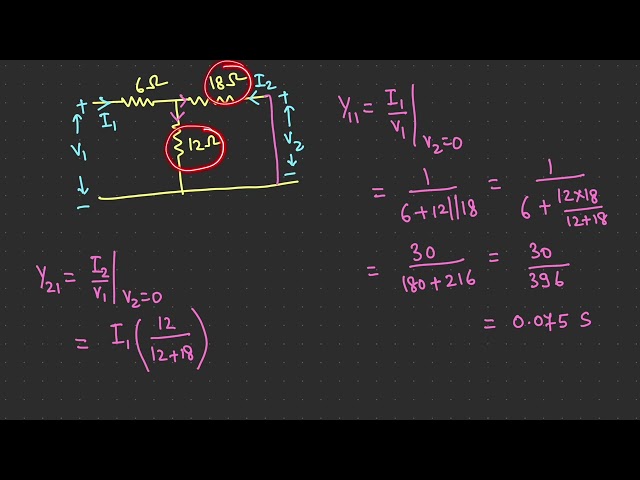 6Ω 18Ω I₂
+ I₁ +
V₁ 12Ω V₂
− −
Y₁₁ = I₁/V₁ |V₂=0
= 1/(6+12||18) = 1/(6 + (12×18)/(12+18))
= 30/(180+216) = 30/396
= 0.075 S
Y₂₁ = I₂/V₁ |V₂=0
= I₁(12/(12+18))